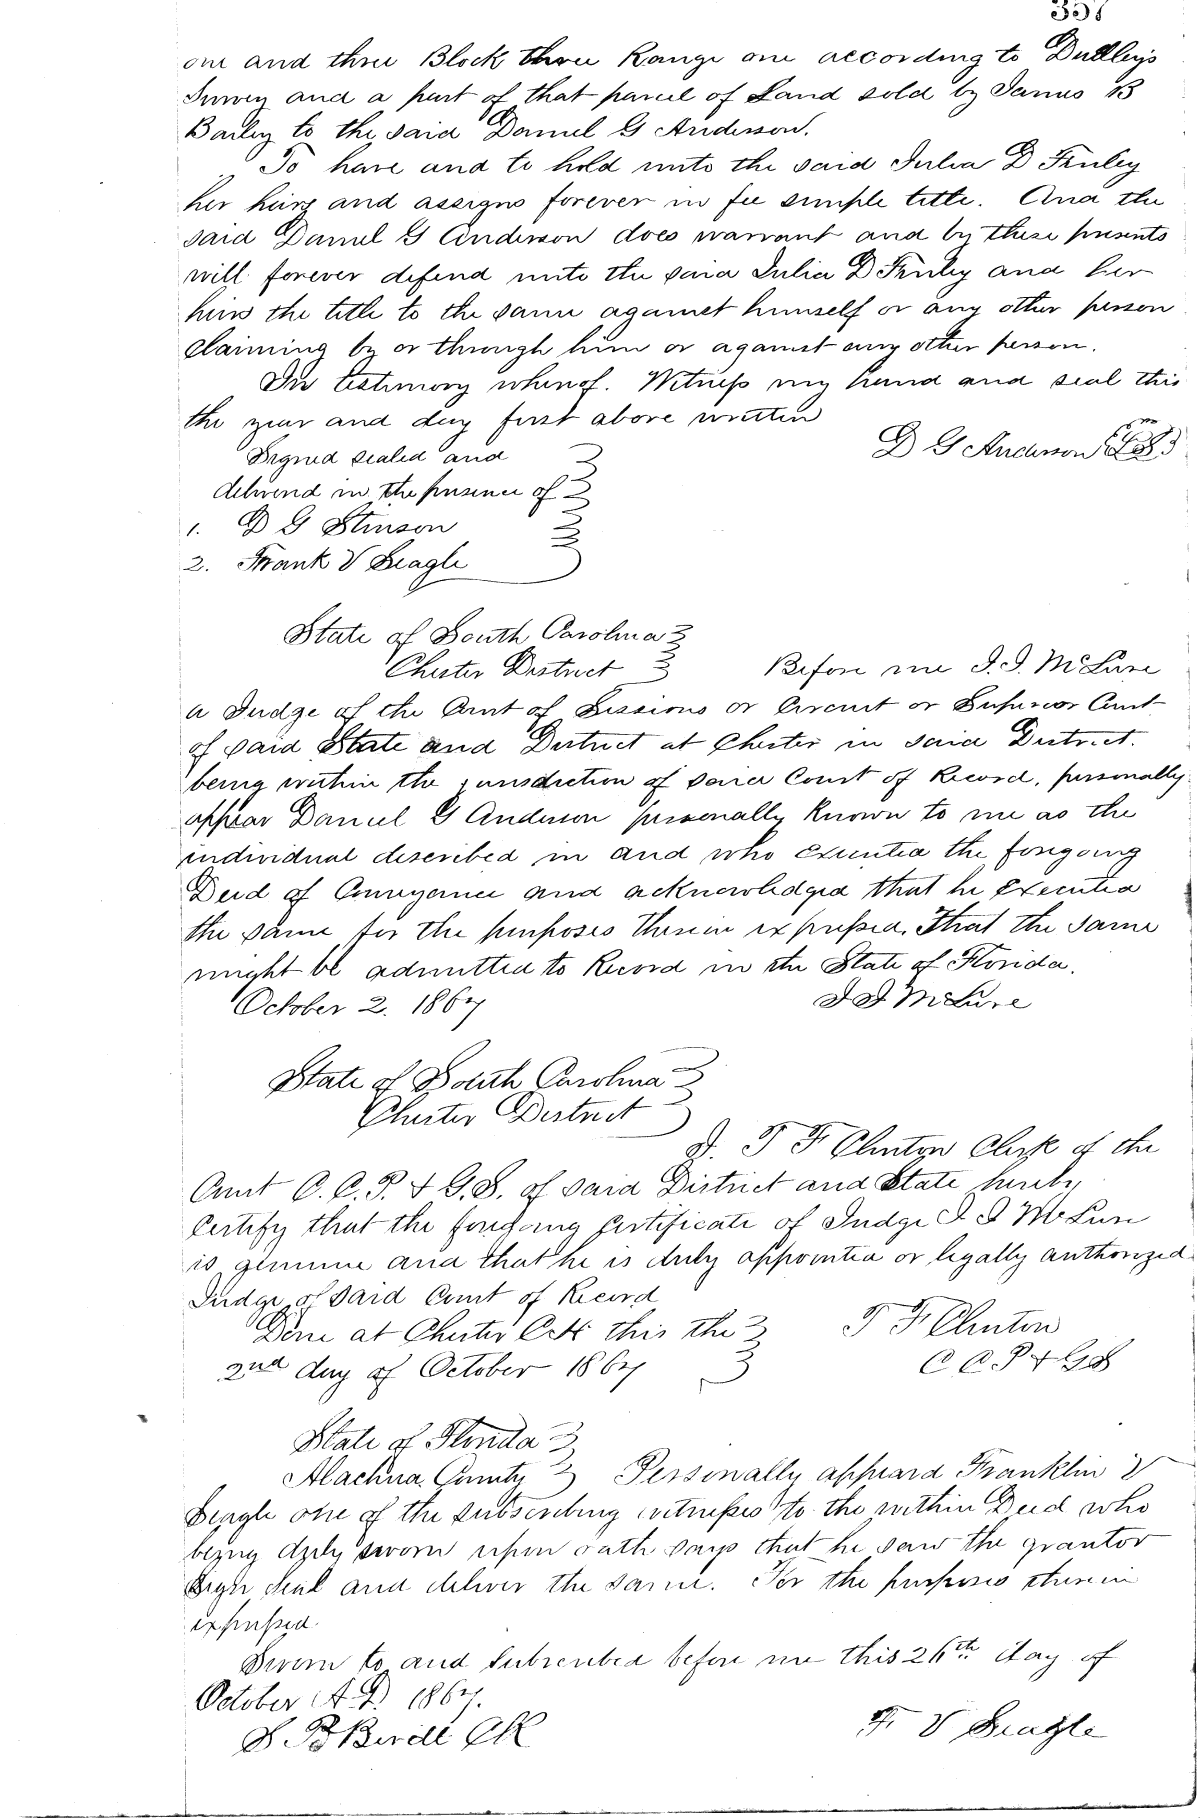 357
one and three Block three Range one according to Dudley's
Survey and a part of that parcel of Land sold by James B
Bailey to the said Daniel G Anderson.
To have and to hold unto the said Julia D Finley
her heirs and assigns forever in fee simple title. And the
said Daniel G Anderson does warrant and by these presents
will forever defend unto the said Julia D Finley and her
heirs the title to the same against himself or any other person
claiming by or through him or against any other person.
In testimony whereof. Witness my hand and seal this
the year and day first above written
D G Anderson L.S.
Signed sealed and
delivered in the presence of
1. D G Stinson
2. Frank V Seagle
State of South Carolina
Chester District Before me J.J. McLure
a Judge of the Court of Sessions or Circuit or Superior Court
of said State and District at Chester in said District.
being within the jurisdiction of said Court of Record, personally
appear Daniel G Anderson personally known to me as the
individual described in and who executed the foregoing
Deed of Conveyance and acknowledged that he executed
the same for the purposes therein expressed, that the same
might be admitted to Record in the State of Florida.
October 2. 1867 J J McLure
State of South Carolina
Chester District
I. T F Clinton Clerk of the
Court C. C. P. & G. S. of said District and State hereby
certify that the foregoing certificate of Judge J J McLure
is genuine and that he is duly appointed or legally authorized
Judge of said Court of Record
Done at Chester C H this the T F Clinton
2nd day of October 1867 C C P & G S
State of Florida
Alachua County Personally appeard Franklin V
Seagle one of the subscribing witnesses to the within Deed who
being duly sworn upon oath says that he saw the grantor
sign seal and deliver the same. For the purposes therein
expressed.
Sworn to and subscribed before me this 26th day of
October A D. 1867.
F. V Seagle